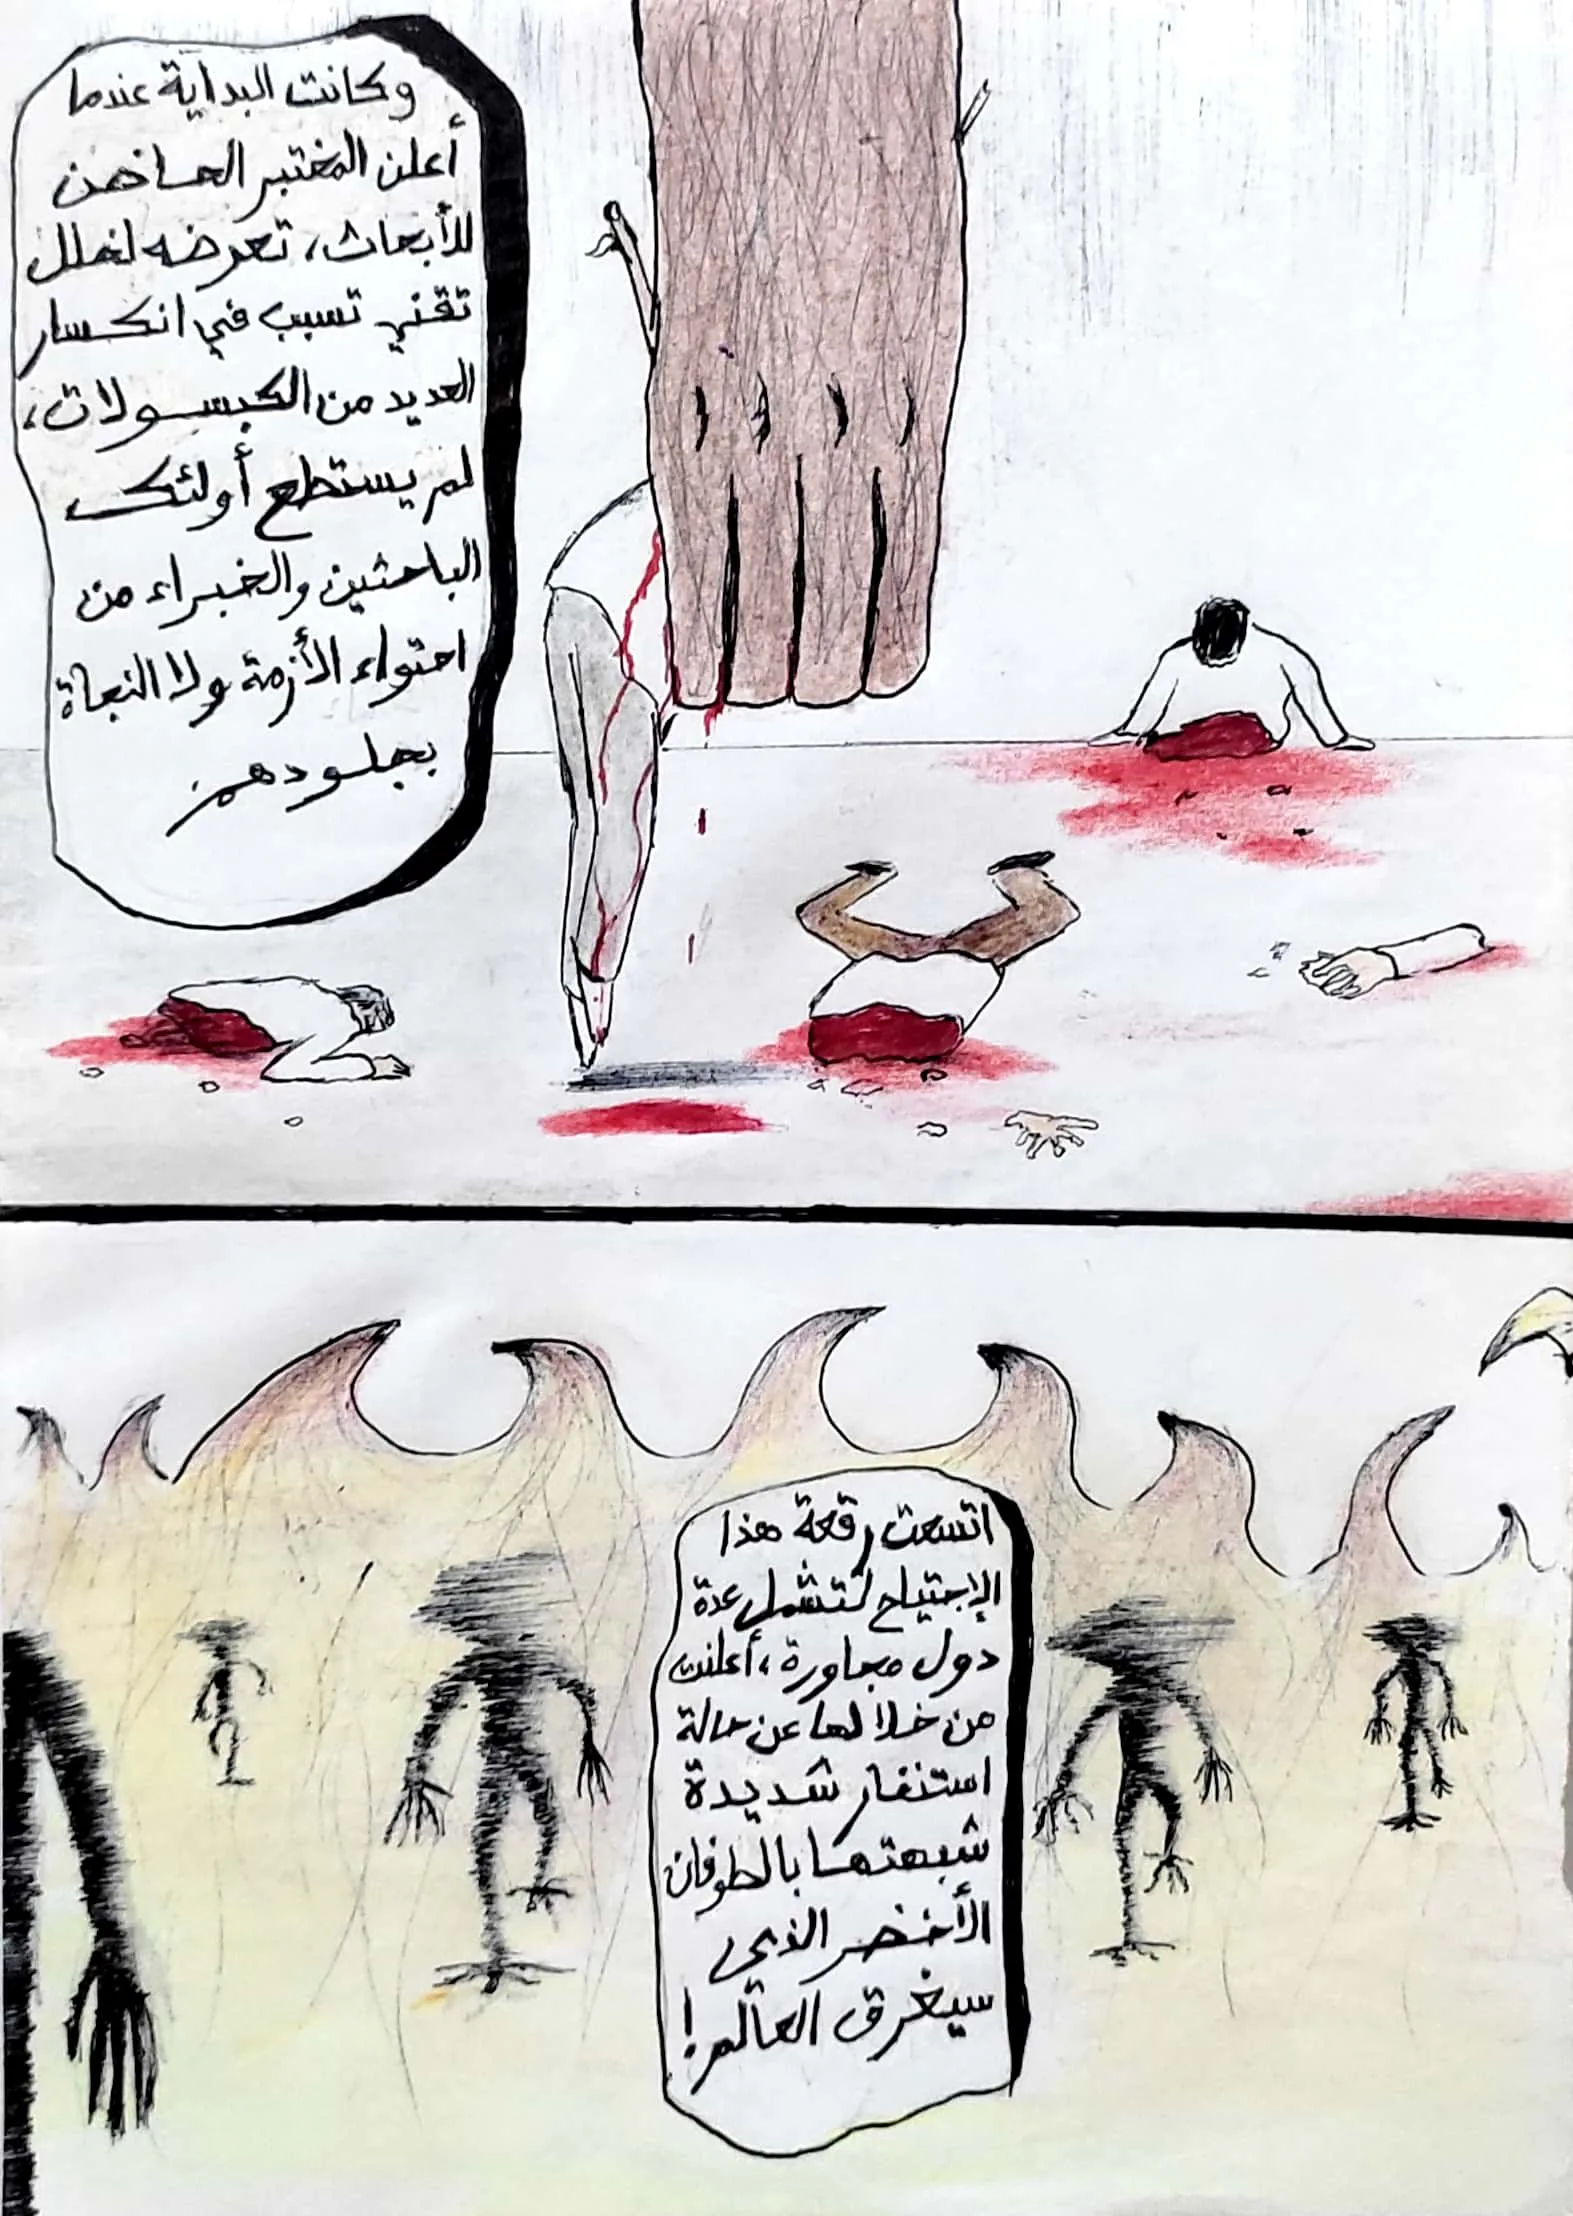 وكانت البداية عندما
أعلن المختبر الحاضن
للأبحاث، تعرضه لخلل
تقني تسبب في انكسار
العديد من الكبسولات،
لم يستطع أولئك
الباحثين والخبراء من
احتواء الأزمة ولا النجاة
بجلودهم
اتسعت رقعة هذا
الإجتياح لتشمل عدة
دول مجاورة، أعلنت
من خلالها عن حالة
استنفار شديدة
شبهتها بالطوفان
الأخضر الذي
سيغرق العالم!